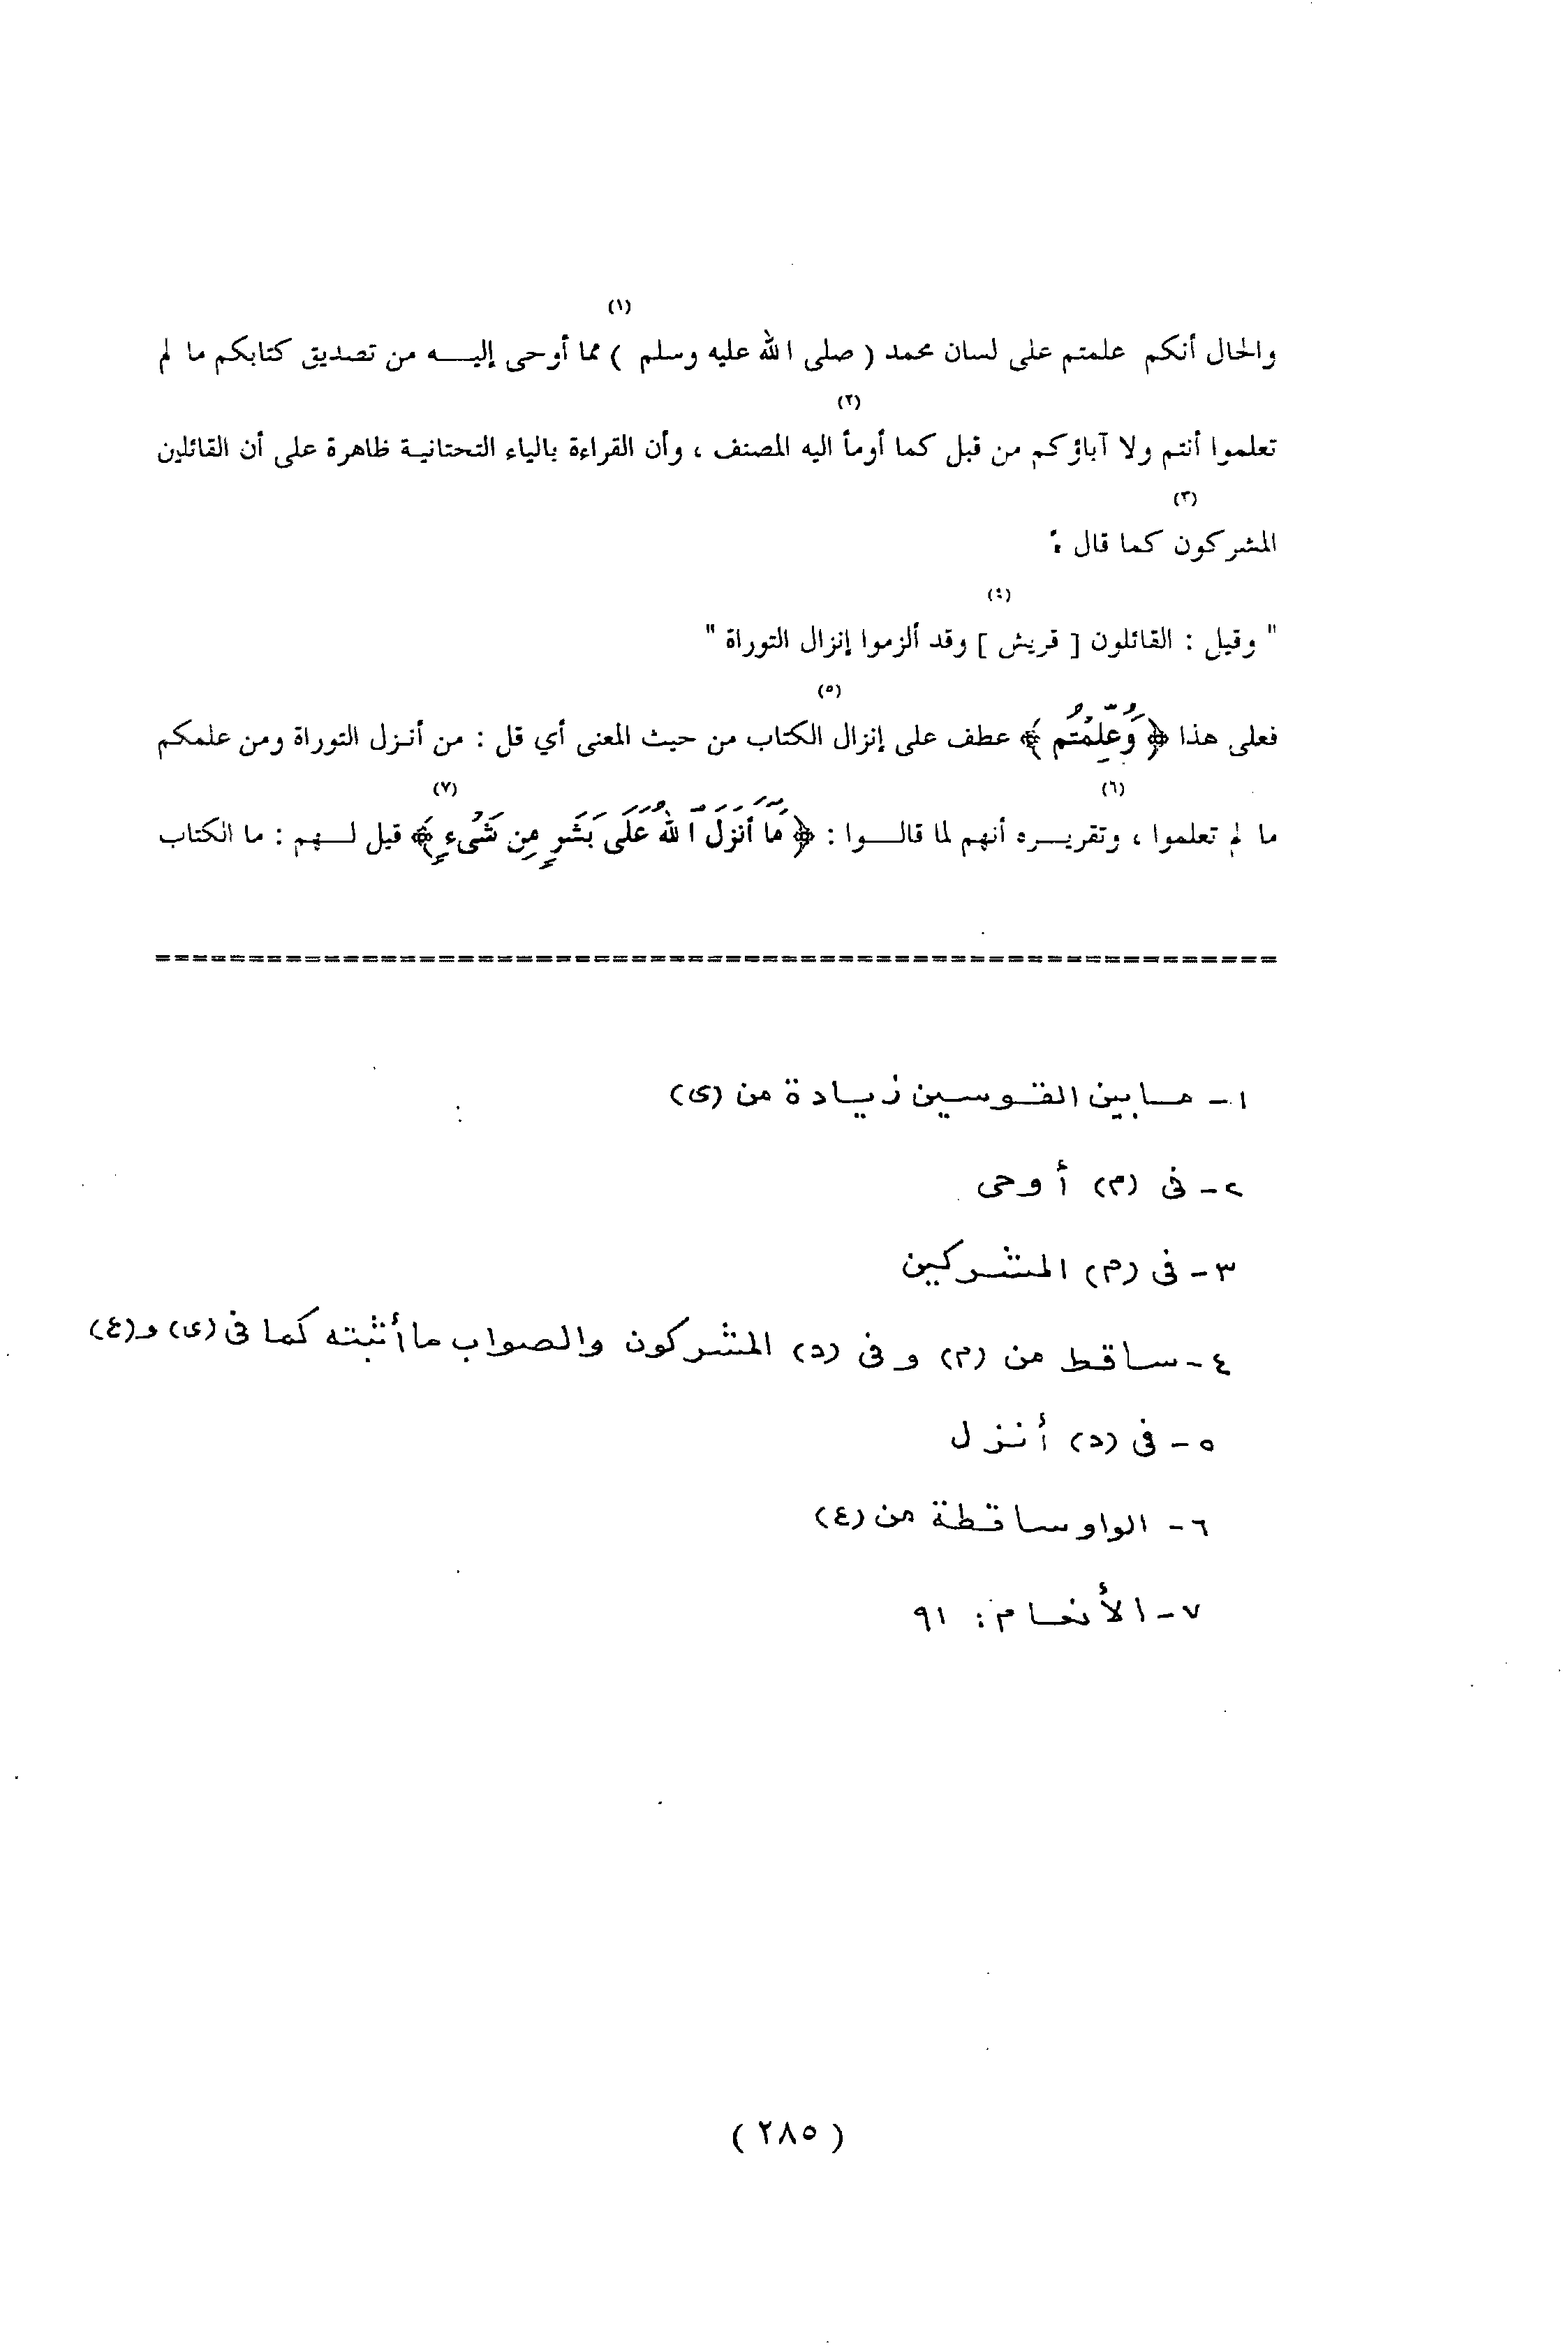 (١)
والحال أنكم علمتم على لسان محمد ( صلى الله عليه وسلم ) مما أوحى إليـــه من تصديق كتابكم ما لم
(٢)
تعلموا أنتم ولا آباؤكم من قبل كما أومأ اليه المصنف ، وأن القراءة بالياء التحتانية ظاهرة على أن القائلين
(٣)
المشركون كما قال :
(٤)
" وقيل : القائلون [ قريش ] وقد ألزموا إنزال التوراة "
(٥)
فعلى هذا ﴿ وَعُلِّمْتُم ﴾ عطف على إنزال الكتاب من حيث المعنى أي قل : من أنـزل التوراة ومن علمكم
(٦) (٧)
ما لم تعلموا ، وتقريـــره أنهم لما قالـــوا : ﴿ مَا أَنزَلَ اللهُ عَلَى بَشَرٍ مِن شَيْءٍ ﴾ قيل لـــهم : ما الكتاب
============================================================
١ - مـا بين القـوسين زيـادة من (ى)
٢ - فى (م) أوحى
٣ - فى (م) المشركين
٤ - ساقط من (م) و فى (د) المشركون والصواب ما أثبته كما فى (ى) و (ع)
٥ - فى (د) أنزل
٦ - الواو ساقطة من (ع)
٧ - الأنعـام : ٩١
( ٢٨٥ )